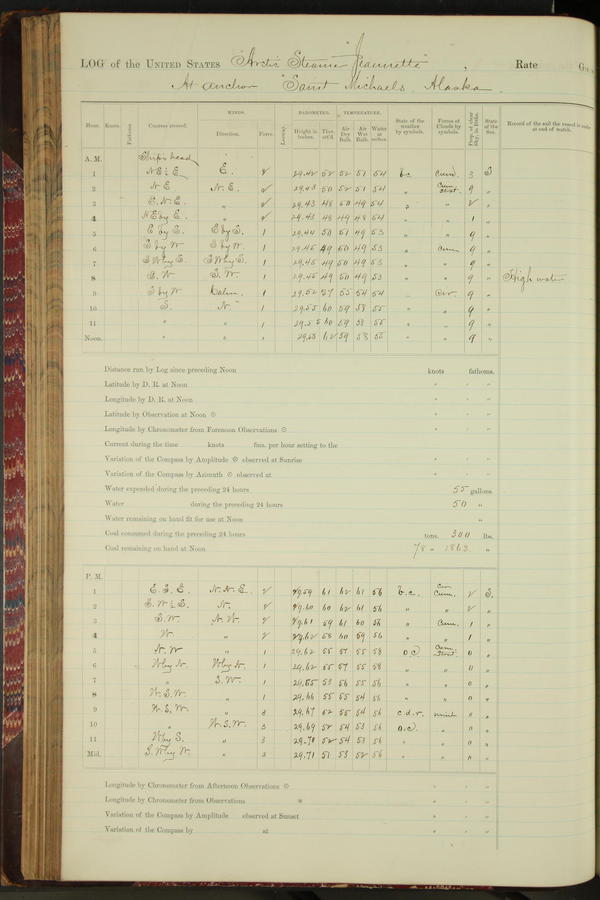 LOG of the UNITED STATES "Arctic Steamer "Jeannette", Rate
At anchor "Saint Michaels, Alaska.
WINDS. BAROMETER. TEMPERATURE.
Hour. Knots. Fathoms. Courses steered. Direction. Force. Leeway. Height in inches. Ther. att'd. Air Dry Bulb. Air Wet Bulb. Water at surface. State of the weather by symbols. Forms of Clouds by symbols. Prop. of clear Sky, in 10ths. State of the Sea. Record of the sail the vessel is under at end of watch.
A. M. Ship's head
1 N E ½ E. E. 2 29.42 52 52 51 54 b.c. Cum. 3 S
2 N E N. E. 2 29.43 50 52 51 54 " Cum. Strat. 9 "
3 E. N. E. " 2 29.43 48 50 49 54 " " 2 "
4 N E by E. " 2 29.43 48 49 48 54 " " 1 "
5 E by S. E by S. 1 29.44 50 51 49 53 " " 9 "
6 S by W S by W. 1 29.45 49 50 49 53 " Cum 9 "
7 S W by S. S W by S. 1 29.45 49 50 49 53 " " 9 "
8 S. W S. W. 1 29.45 49 50 49 53 " " 9 " High water
9 S by W Calm. 1 29.52 57 55 54 54 " Cir. 9 "
10 S. N. 1 29.55 60 59 58 55 " " 9 "
11 " " 1 29.55 60 59 58 55 " " 9 "
Noon. " " 1 29.53 62 59 58 55 " " 9 "
Distance run by Log since preceding Noon knots fathoms.
Latitude by D. R. at Noon ° ′ ″
Longitude by D. R. at Noon ° ′ ″
Latitude by Observation at Noon ☉ ° ′ ″
Longitude by Chronometer from Forenoon Observations ☉ ° ′ ″
Current during the time knots fms. per hour setting to the
Variation of the Compass by Amplitude ☉ observed at Sunrise ° ′ ″
Variation of the Compass by Azimuth ☉ observed at ° ′ ″
Water expended during the preceding 24 hours 55 gallons.
Water during the preceding 24 hours 50 "
Water remaining on hand fit for use at Noon "
Coal consumed during the preceding 24 hours tons. 300 lbs.
Coal remaining on hand at Noon 78 " 1863 "
P. M.
1 E. S. E. N. N. E. 2 29.59 61 62 61 56 b.c. Cir. Cum. 2 S.
2 S. W ½ S. N. 2 29.60 60 62 61 56 " " 2 "
3 S. W. N. W. 2 29.61 59 61 60 56 " Cum. 1 "
4 W. " 2 29.62 58 60 59 56 " " 1 "
5 N. W " 1 29.62 55 57 55 58 o.c. Cum. Strat. 0 "
6 W by N. W by N. 1 29.62 55 57 55 58 " " 0 "
7 " S. W. 1 29.65 53 56 55 56 " " 0 "
8 W. S. W. " 1 29.66 55 55 54 56 " " 0 "
9 W. S. W. " 3 29.67 52 55 54 56 c.d.r. 0 "
10 " W. S. W. 3 29.69 52 54 53 56 o.c. " 0 "
11 W by S. " 3 29.70 52 54 53 56 " " 0 "
Mid. S. W by W. " 3 29.71 51 53 52 56 " " 0 "
Longitude by Chronometer from Afternoon Observations ☉ ° ′ ″
Longitude by Chronometer from Observations * ° ′ ″
Variation of the Compass by Amplitude observed at Sunset ° ′ ″
Variation of the Compass by at ° ′ ″